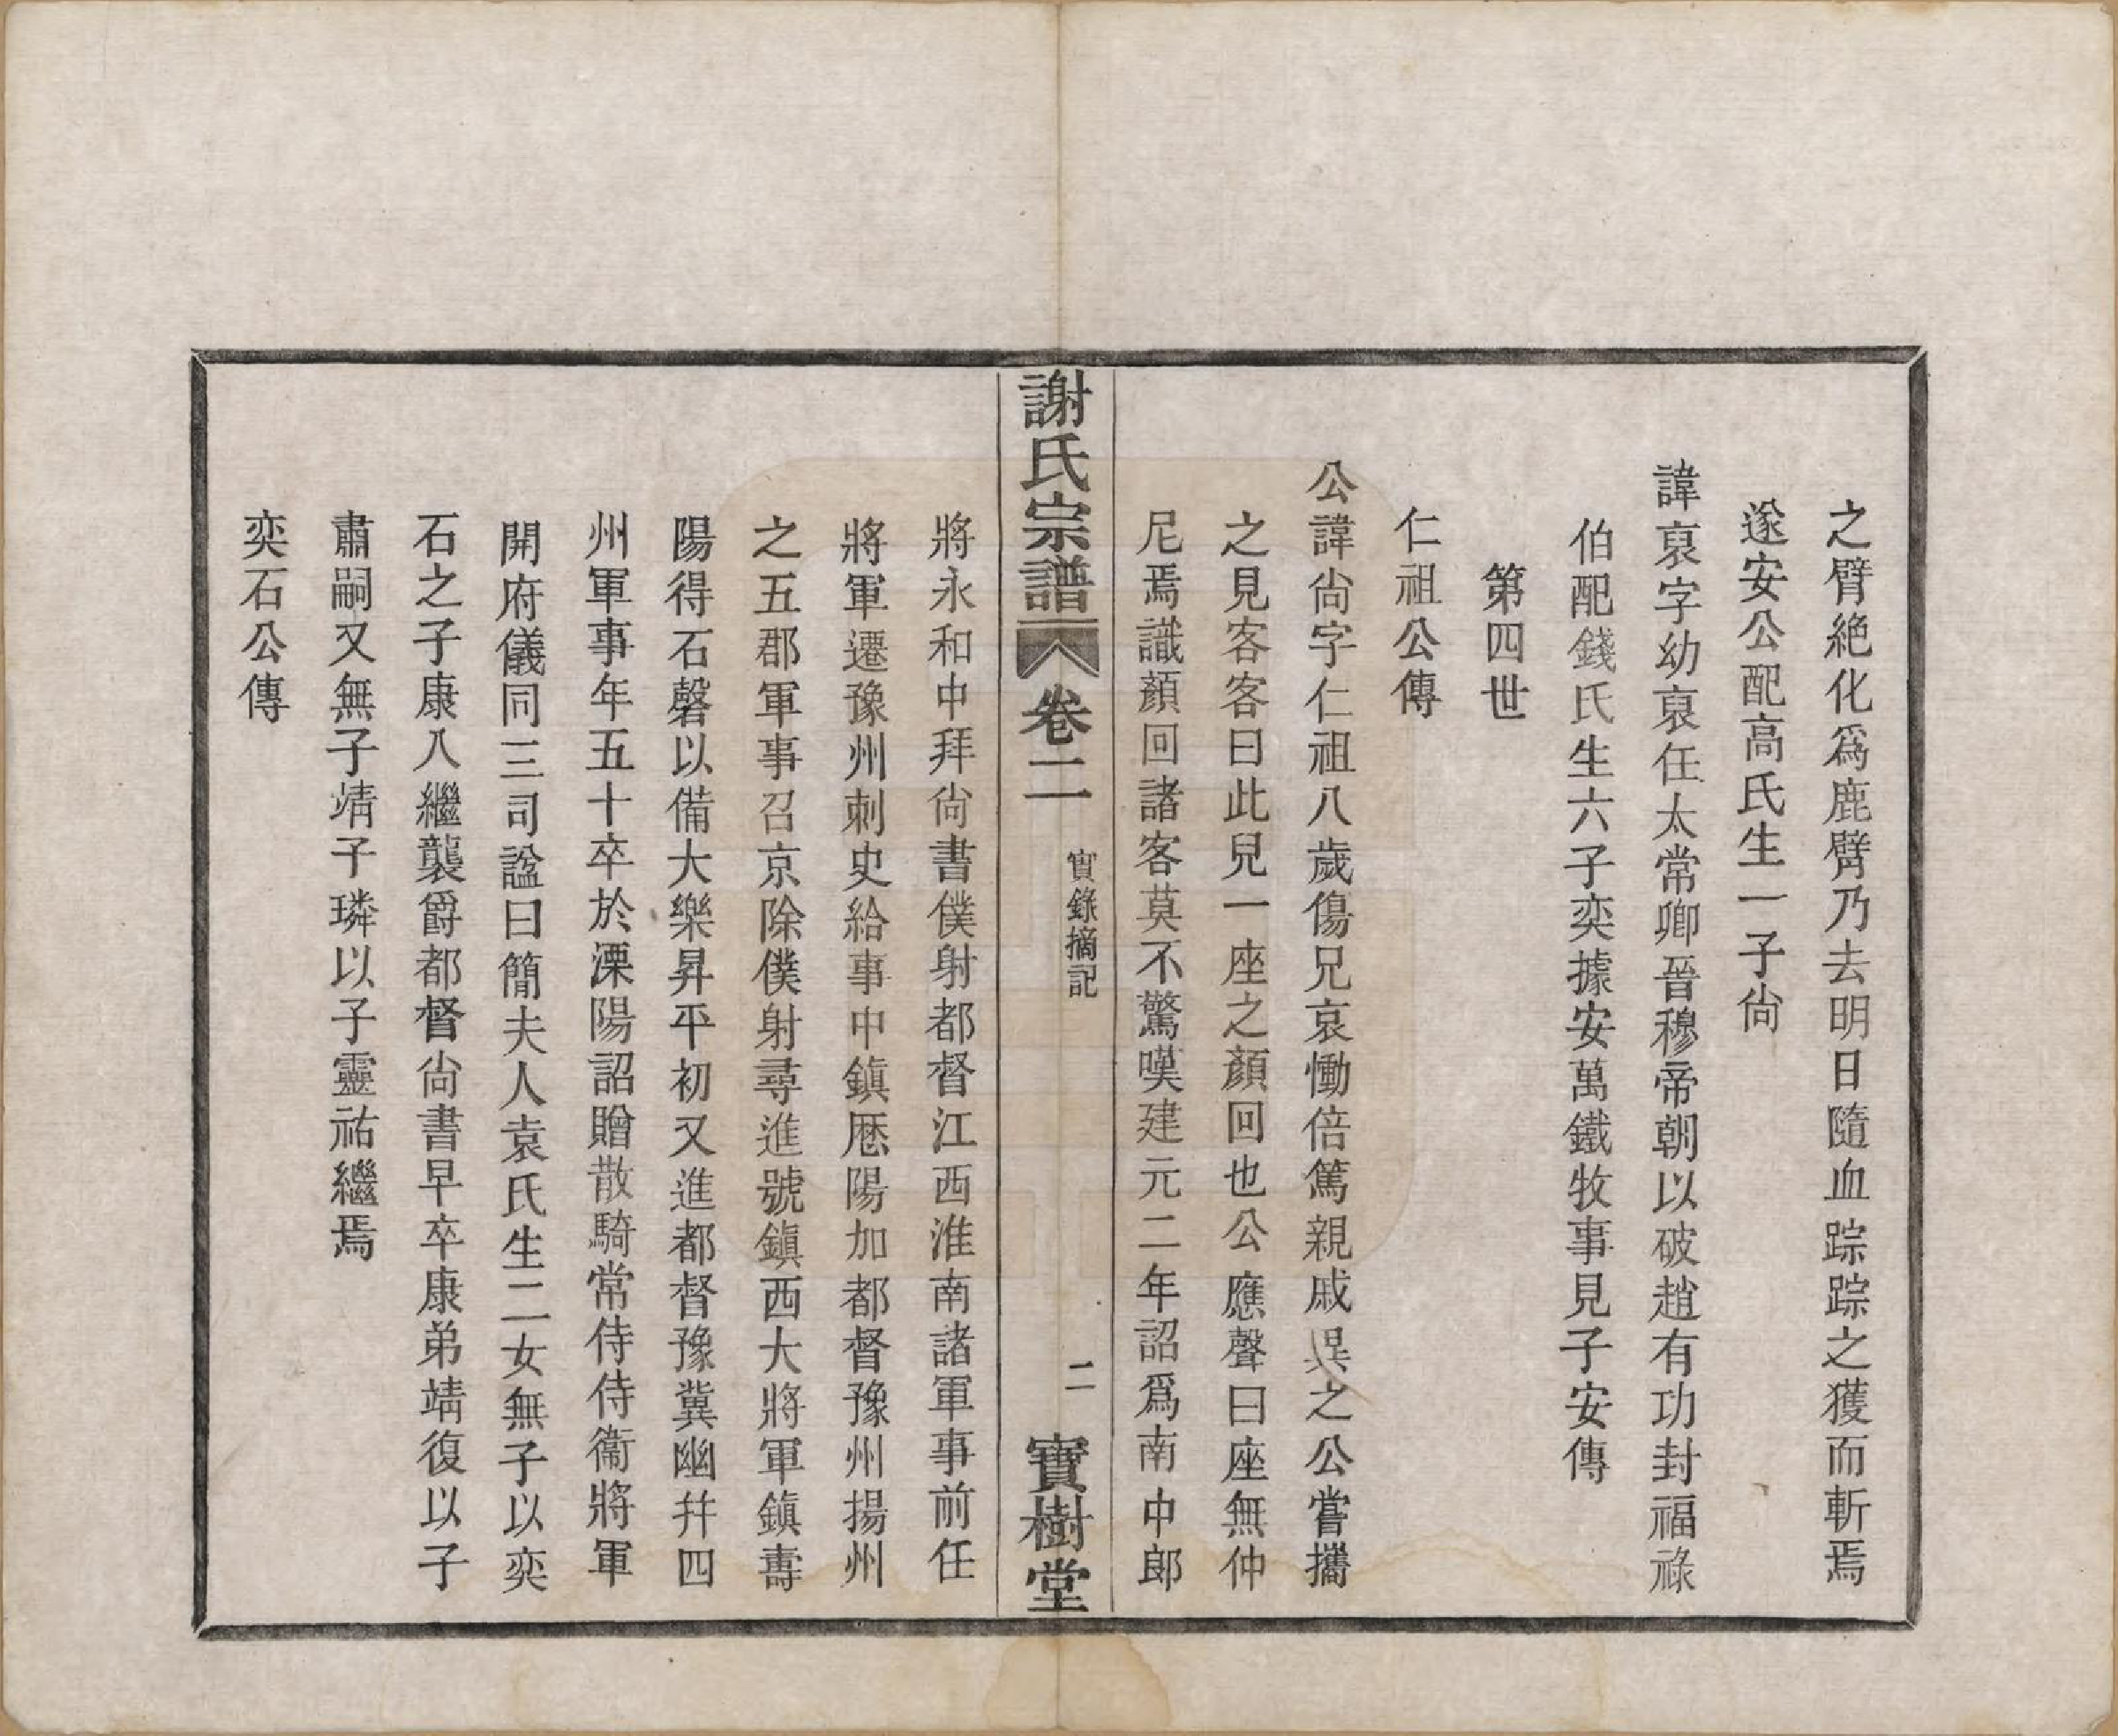 之臂絶化爲鹿臂乃去明日隨血踪踪之獲而斬焉
遂安公配高氏生一子尙
諱裒字幼裒任太常卿晉穆帝朝以破趙有功封福祿
伯配錢氏生六子奕據安萬鐵牧事見子安傳
第四世
仁祖公傳
公諱尙字仁祖八歲傷兄哀慟倍篤親戚異之公嘗攜
之見客客曰此兒一座之顏回也公應聲曰座無仲
尼焉識顏回諸客莫不驚嘆建元二年詔爲南中郞
謝氏宗譜
卷二
實錄摘記
二
寶樹堂
將永和中拜尙書僕射都督江西淮南諸軍事前任
將軍遷豫州刺史給事中鎮厯陽加都督豫州揚州
之五郡軍事召京除僕射尋進號鎮西大將軍鎮壽
陽得石磬以備大樂昇平初又進都督豫冀幽幷四
州軍事年五十卒於溧陽詔贈散騎常侍侍衞將軍
開府儀同三司諡曰簡夫人袁氏生二女無子以奕
石之子康八繼襲爵都督尙書早卒康弟靖復以子
肅嗣又無子靖子璘以子靈祐繼焉
奕石公傳